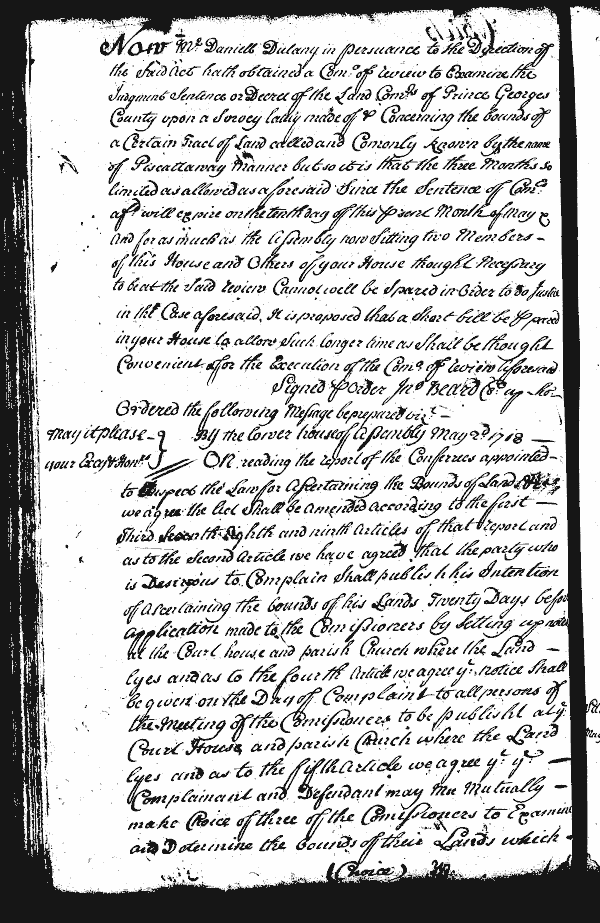 Now Mr. Daniell Dulany in persuance to the Direction of
the said act hath obtained a Com.n of review to Examine the
Judgment Sentence or Decree of the Land Com.rs of Prince Georges
County upon a Survey lately made of & Concerning the bounds of
a Certain Tract of Land called and Comonly known by the name
of Piscattaway Manner but so it is that the three Months so
limited as allowed as aforesaid Since the Sentence of Com.rs
afd. will expire on the tenth day of this p.sent Month of May &
And for as much as the Assembly now Sitting two Members -
of this House and Others of your House thought Necessary
to be at the Said review Cannot well be Spared in Order to do Justice
in the Case aforesaid. It is proposed that a Short bill be p.pared
in your House to allow Such longer time as Shall be thought
Convenient for the Execution of the Com.n of review aforesaid
Signed p Order Jno. Beard Cl. up. Ho.
Ordered the following Message be prepared viz.t -
May it please - } By the lower house of Assembly May 2d 1718 -
your Excy & Honrs } On reading the report of the Conferrees appointed -
to Inspect the Law for Ascertaining the Bounds of Land
we agree the Act Shall be amended according to the first -
third Seventh Eighth and ninth Articles of that report and
as to the Second Article we have agreed that the party who
is Desirous to Complain Shall publish his Intention
of ascertaining the bounds of his Lands Twenty Days before
application made to the Comissioners by Setting up notes
at the Court house and parish Church where the Land -
lyes and as to the fourth Article we agree yt. notice Shall
be given on the Day of Complaint to all persons of
the Meeting of the Comissioners to be publisht at ye.
Court House and parish Church where the Land
lyes and as to the fifth Article we agree yt. ye. -
Complainant and Defendant may Mutually -
make Choice of three of the Comissioners to Examine
and Determine the bounds of their Lands which -
(Choice)